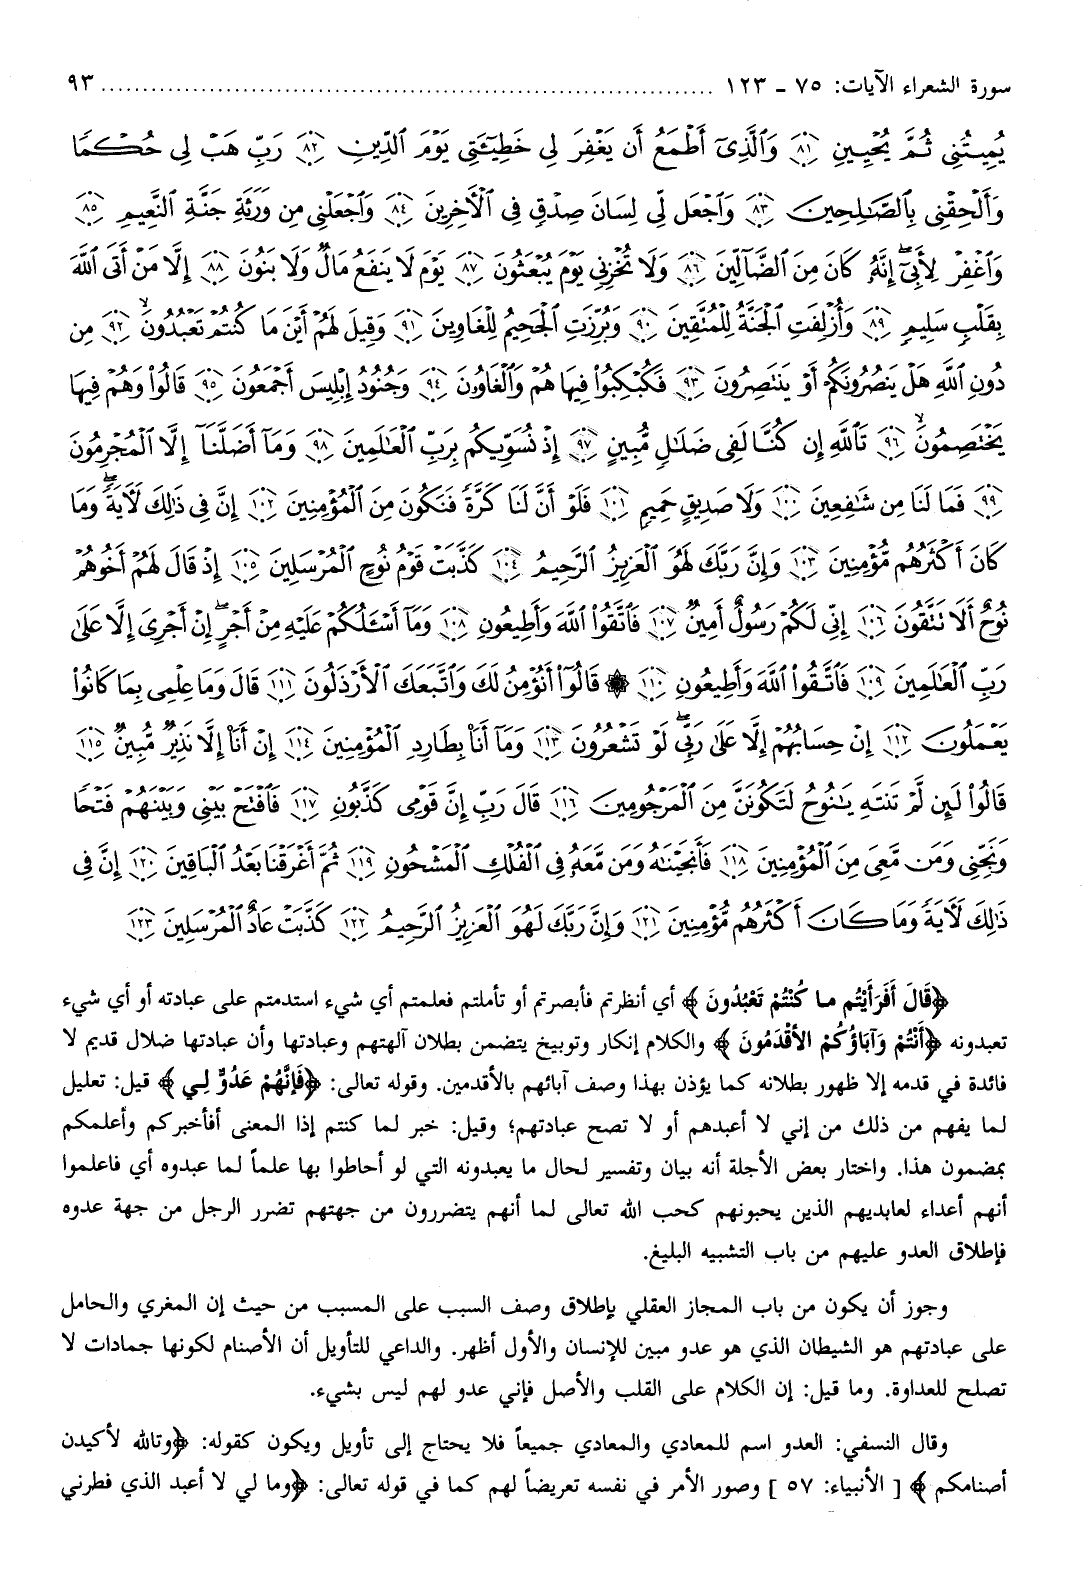 سورة الشعراء الآيات: ٧٥ - ١٢٣ ........................................ ٩٣
يُمِيتُنِي ثُمَّ يُحْيِينِ ﴿٨١﴾ وَالَّذِي أَطْمَعُ أَن يَغْفِرَ لِي خَطِيئَتِي يَوْمَ الدِّينِ ﴿٨٢﴾ رَبِّ هَبْ لِي حُكْمًا
وَأَلْحِقْنِي بِالصَّالِحِينَ ﴿٨٣﴾ وَاجْعَل لِّي لِسَانَ صِدْقٍ فِي الْآخِرِينَ ﴿٨٤﴾ وَاجْعَلْنِي مِن وَرَثَةِ جَنَّةِ النَّعِيمِ ﴿٨٥﴾
وَاغْفِرْ لِأَبِي إِنَّهُ كَانَ مِنَ الضَّالِّينَ ﴿٨٦﴾ وَلَا تُخْزِنِي يَوْمَ يُبْعَثُونَ ﴿٨٧﴾ يَوْمَ لَا يَنفَعُ مَالٌ وَلَا بَنُونَ ﴿٨٨﴾ إِلَّا مَنْ أَتَى اللَّهَ
بِقَلْبٍ سَلِيمٍ ﴿٨٩﴾ وَأُزْلِفَتِ الْجَنَّةُ لِلْمُتَّقِينَ ﴿٩٠﴾ وَبُرِّزَتِ الْجَحِيمُ لِلْغَاوِينَ ﴿٩١﴾ وَقِيلَ لَهُمْ أَيْنَ مَا كُنتُمْ تَعْبُدُونَ ﴿٩٢﴾ مِن
دُونِ اللَّهِ هَلْ يَنصُرُونَكُمْ أَوْ يَنتَصِرُونَ ﴿٩٣﴾ فَكُبْكِبُوا فِيهَا هُمْ وَالْغَاوُونَ ﴿٩٤﴾ وَجُنُودُ إِبْلِيسَ أَجْمَعُونَ ﴿٩٥﴾ قَالُوا وَهُمْ فِيهَا
يَخْتَصِمُونَ ﴿٩٦﴾ تَاللَّهِ إِن كُنَّا لَفِي ضَلَالٍ مُّبِينٍ ﴿٩٧﴾ إِذْ نُسَوِّيكُم بِرَبِّ الْعَالَمِينَ ﴿٩٨﴾ وَمَا أَضَلَّنَا إِلَّا الْمُجْرِمُونَ
﴿٩٩﴾ فَمَا لَنَا مِن شَافِعِينَ ﴿١٠٠﴾ وَلَا صَدِيقٍ حَمِيمٍ ﴿١٠١﴾ فَلَوْ أَنَّ لَنَا كَرَّةً فَنَكُونَ مِنَ الْمُؤْمِنِينَ ﴿١٠٢﴾ إِنَّ فِي ذَلِكَ لَآيَةً وَمَا
كَانَ أَكْثَرُهُم مُّؤْمِنِينَ ﴿١٠٣﴾ وَإِنَّ رَبَّكَ لَهُوَ الْعَزِيزُ الرَّحِيمُ ﴿١٠٤﴾ كَذَّبَتْ قَوْمُ نُوحٍ الْمُرْسَلِينَ ﴿١٠٥﴾ إِذْ قَالَ لَهُمْ أَخُوهُمْ
نُوحٌ أَلَا تَتَّقُونَ ﴿١٠٦﴾ إِنِّي لَكُمْ رَسُولٌ أَمِينٌ ﴿١٠٧﴾ فَاتَّقُوا اللَّهَ وَأَطِيعُونِ ﴿١٠٨﴾ وَمَا أَسْأَلُكُمْ عَلَيْهِ مِنْ أَجْرٍ إِنْ أَجْرِيَ إِلَّا عَلَى
رَبِّ الْعَالَمِينَ ﴿١٠٩﴾ فَاتَّقُوا اللَّهَ وَأَطِيعُونِ ﴿١١٠﴾ ۞ قَالُوا أَنُؤْمِنُ لَكَ وَاتَّبَعَكَ الْأَرْذَلُونَ ﴿١١١﴾ قَالَ وَمَا عِلْمِي بِمَا كَانُوا
يَعْمَلُونَ ﴿١١٢﴾ إِنْ حِسَابُهُمْ إِلَّا عَلَى رَبِّي لَوْ تَشْعُرُونَ ﴿١١٣﴾ وَمَا أَنَا بِطَارِدِ الْمُؤْمِنِينَ ﴿١١٤﴾ إِنْ أَنَا إِلَّا نَذِيرٌ مُّبِينٌ ﴿١١٥﴾
قَالُوا لَئِن لَّمْ تَنتَهِ يَانُوحُ لَتَكُونَنَّ مِنَ الْمَرْجُومِينَ ﴿١١٦﴾ قَالَ رَبِّ إِنَّ قَوْمِي كَذَّبُونِ ﴿١١٧﴾ فَافْتَحْ بَيْنِي وَبَيْنَهُمْ فَتْحًا
وَنَجِّنِي وَمَن مَّعِيَ مِنَ الْمُؤْمِنِينَ ﴿١١٨﴾ فَأَنجَيْنَاهُ وَمَن مَّعَهُ فِي الْفُلْكِ الْمَشْحُونِ ﴿١١٩﴾ ثُمَّ أَغْرَقْنَا بَعْدُ الْبَاقِينَ ﴿١٢٠﴾ إِنَّ فِي
ذَلِكَ لَآيَةً وَمَا كَانَ أَكْثَرُهُم مُّؤْمِنِينَ ﴿١٢١﴾ وَإِنَّ رَبَّكَ لَهُوَ الْعَزِيزُ الرَّحِيمُ ﴿١٢٢﴾ كَذَّبَتْ عَادٌ الْمُرْسَلِينَ ﴿١٢٣﴾
﴿قَالَ أَفَرَأَيْتُم ما كُنْتُمْ تَعْبُدُونَ﴾ أي أنظرتم فأبصرتم أو تأملتم فعلمتم أي شيء استدمتم على عبادته أو أي شيء
تعبدونه ﴿أَنْتُمْ وَآبَاؤُكُمْ الأَقْدَمُونَ﴾ والكلام إنكار وتوبيخ يتضمن بطلان آلهتهم وعبادتها وأن عبادتها ضلال قديم لا
فائدة في قدمه إلا ظهور بطلانه كما يؤذن بهذا وصف آبائهم بالأقدمين. وقوله تعالى: ﴿فَإِنَّهُمْ عَدُوٌّ لِي﴾ قيل: تعليل
لما يفهم من ذلك من إني لا أعبدهم أو لا تصح عبادتهم؛ وقيل: خبر لما كنتم إذا المعنى أفأخبركم وأعلمكم
بمضمون هذا. واختار بعض الأجلة أنه بيان وتفسير لحال ما يعبدونه التي لو أحاطوا بها علماً لما عبدوه أي فاعلموا
أنهم أعداء لعابديهم الذين يحبونهم كحب الله تعالى لما أنهم يتضررون من جهتهم تضرر الرجل من جهة عدوه
فإطلاق العدو عليهم من باب التشبيه البليغ.
وجوز أن يكون من باب المجاز العقلي بإطلاق وصف السبب على المسبب من حيث إن المغري والحامل
على عبادتهم هو الشيطان الذي هو عدو مبين للإنسان والأول أظهر. والداعي للتأويل أن الأصنام لكونها جمادات لا
تصلح للعداوة. وما قيل: إن الكلام على القلب والأصل فإني عدو لهم ليس بشيء.
وقال النسفي: العدو اسم للمعادي والمعادي جميعاً فلا يحتاج إلى تأويل ويكون كقوله: ﴿وتالله لأكيدن
أصنامكم﴾ [ الأنبياء: ٥٧ ] وصور الأمر في نفسه تعريضاً لهم كما في قوله تعالى: ﴿وما لي لا أعبد الذي فطرني